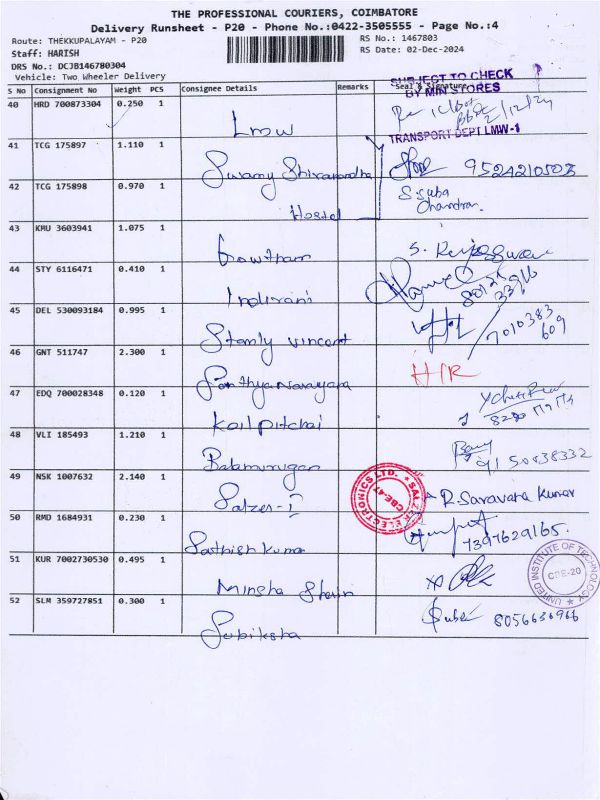 THE PROFESSIONAL COURIERS, COIMBATORE
Delivery Runsheet - P20 - Phone No.:0422-3505555 - Page No.:4
Route: THEKKUPALAYAM - P20 RS No.: 1467803
Staff: HARISH RS Date: 02-Dec-2024
DRS No.: DCJB146780304
Vehicle: Two Wheeler Delivery
SUBJECT TO CHECK
BY MIN STORES
S No Consignment No Weight PCS Consignee Details Remarks Seal & Signature
40 HRD 700873304 0.250 1 LMW 2/12/24
TRANSPORT DEPT LMW-1
41 TCG 175897 1.110 1 Swamy Shivanandha 9524210503
42 TCG 175898 0.970 1 Hostel S.Suba
Chandran.
43 KMU 3603941 1.075 1 Gowtham S.
44 STY 6116471 0.410 1 Indirani
45 DEL 530093184 0.995 1 Stanly vincent 7010383
609
46 GNT 511747 2.300 1 Santhyanarayana H/R
47 EDQ 700028348 0.120 1 Koilpitchai
48 VLI 185493 1.210 1 Balamurugan 9150838332
49 NSK 1007632 2.140 1 Salzer-I SALZER ELECTRONICS LTD. CBE-47 R. Saravana Kumar
50 RMD 1684931 0.230 1 Sathish Kumar 7397629165.
51 KUR 7002730530 0.495 1 Minsha Sherin UNITED INSTITUTE OF TECHNOLOGY CBE-20
52 SLM 359727851 0.300 1 Subiksha 8056636966